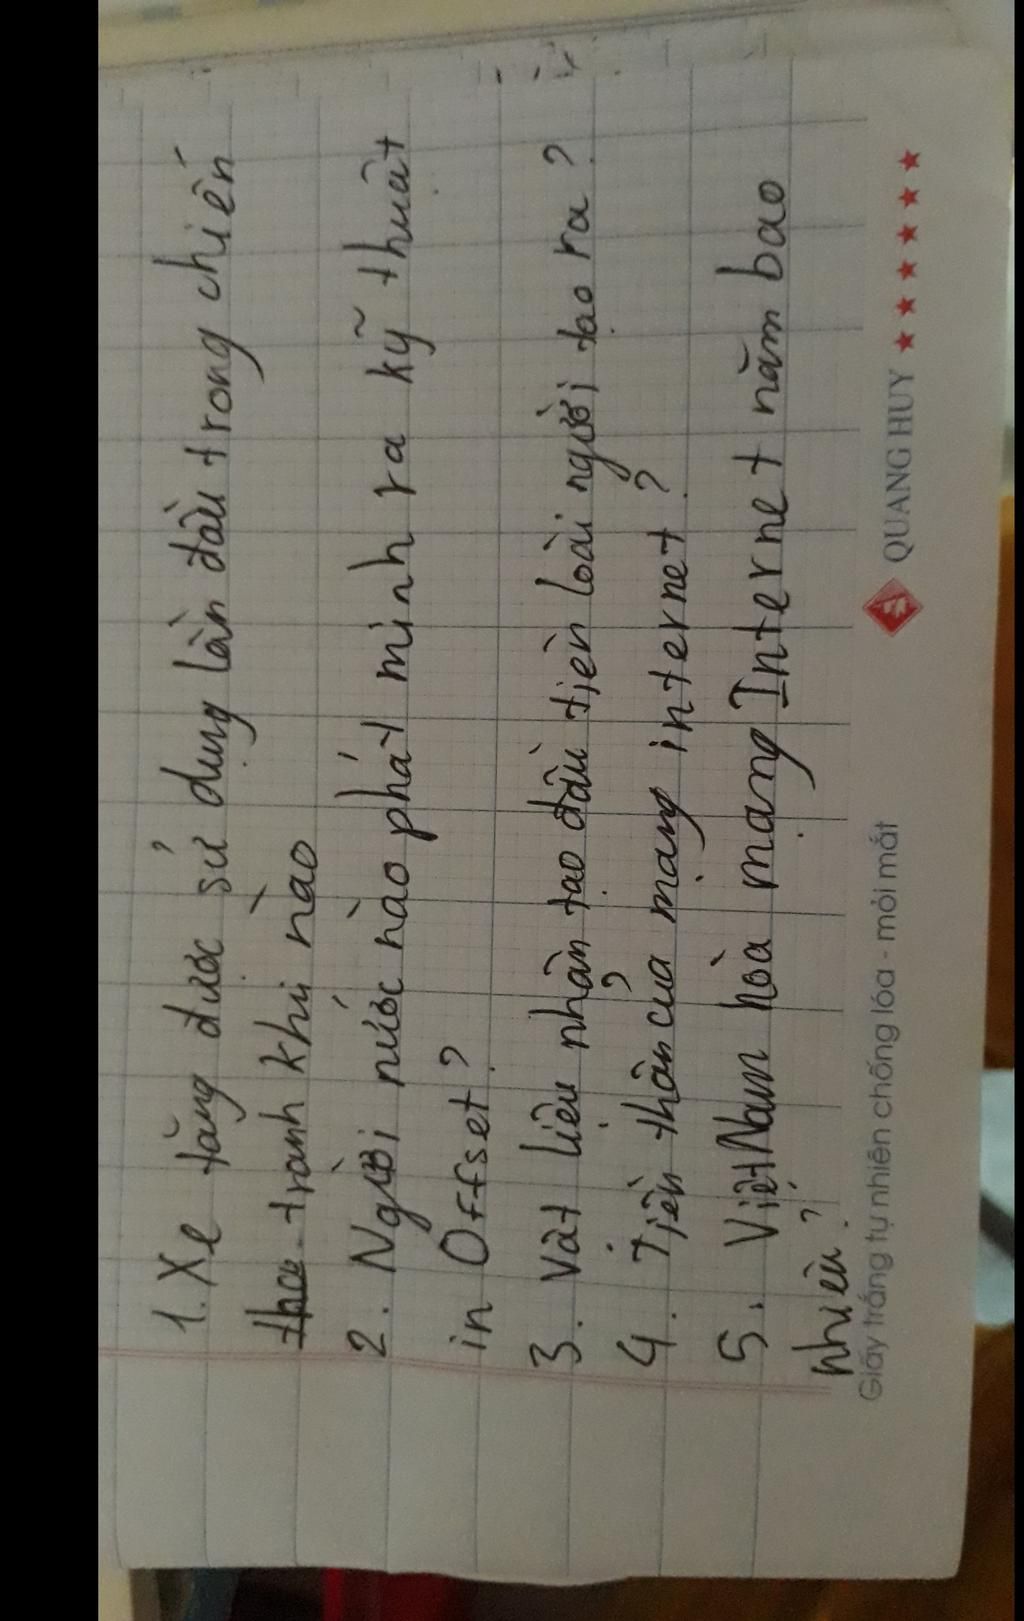 1. Xe tăng được sử dụng lần đầu trong chiến
tranh khi nào
2. Người nước nào phát minh ra kỹ thuật
in Offset?
3. Vật liệu nhân tạo đầu tiên loài người tạo ra?
4. Tiền thân của mạng internet?
5. Việt Nam hòa mạng Internet năm bao
nhiêu?
Giấy trắng tự nhiên chống lóa - mỏi mắt
QUANG HUY ★★★★★★